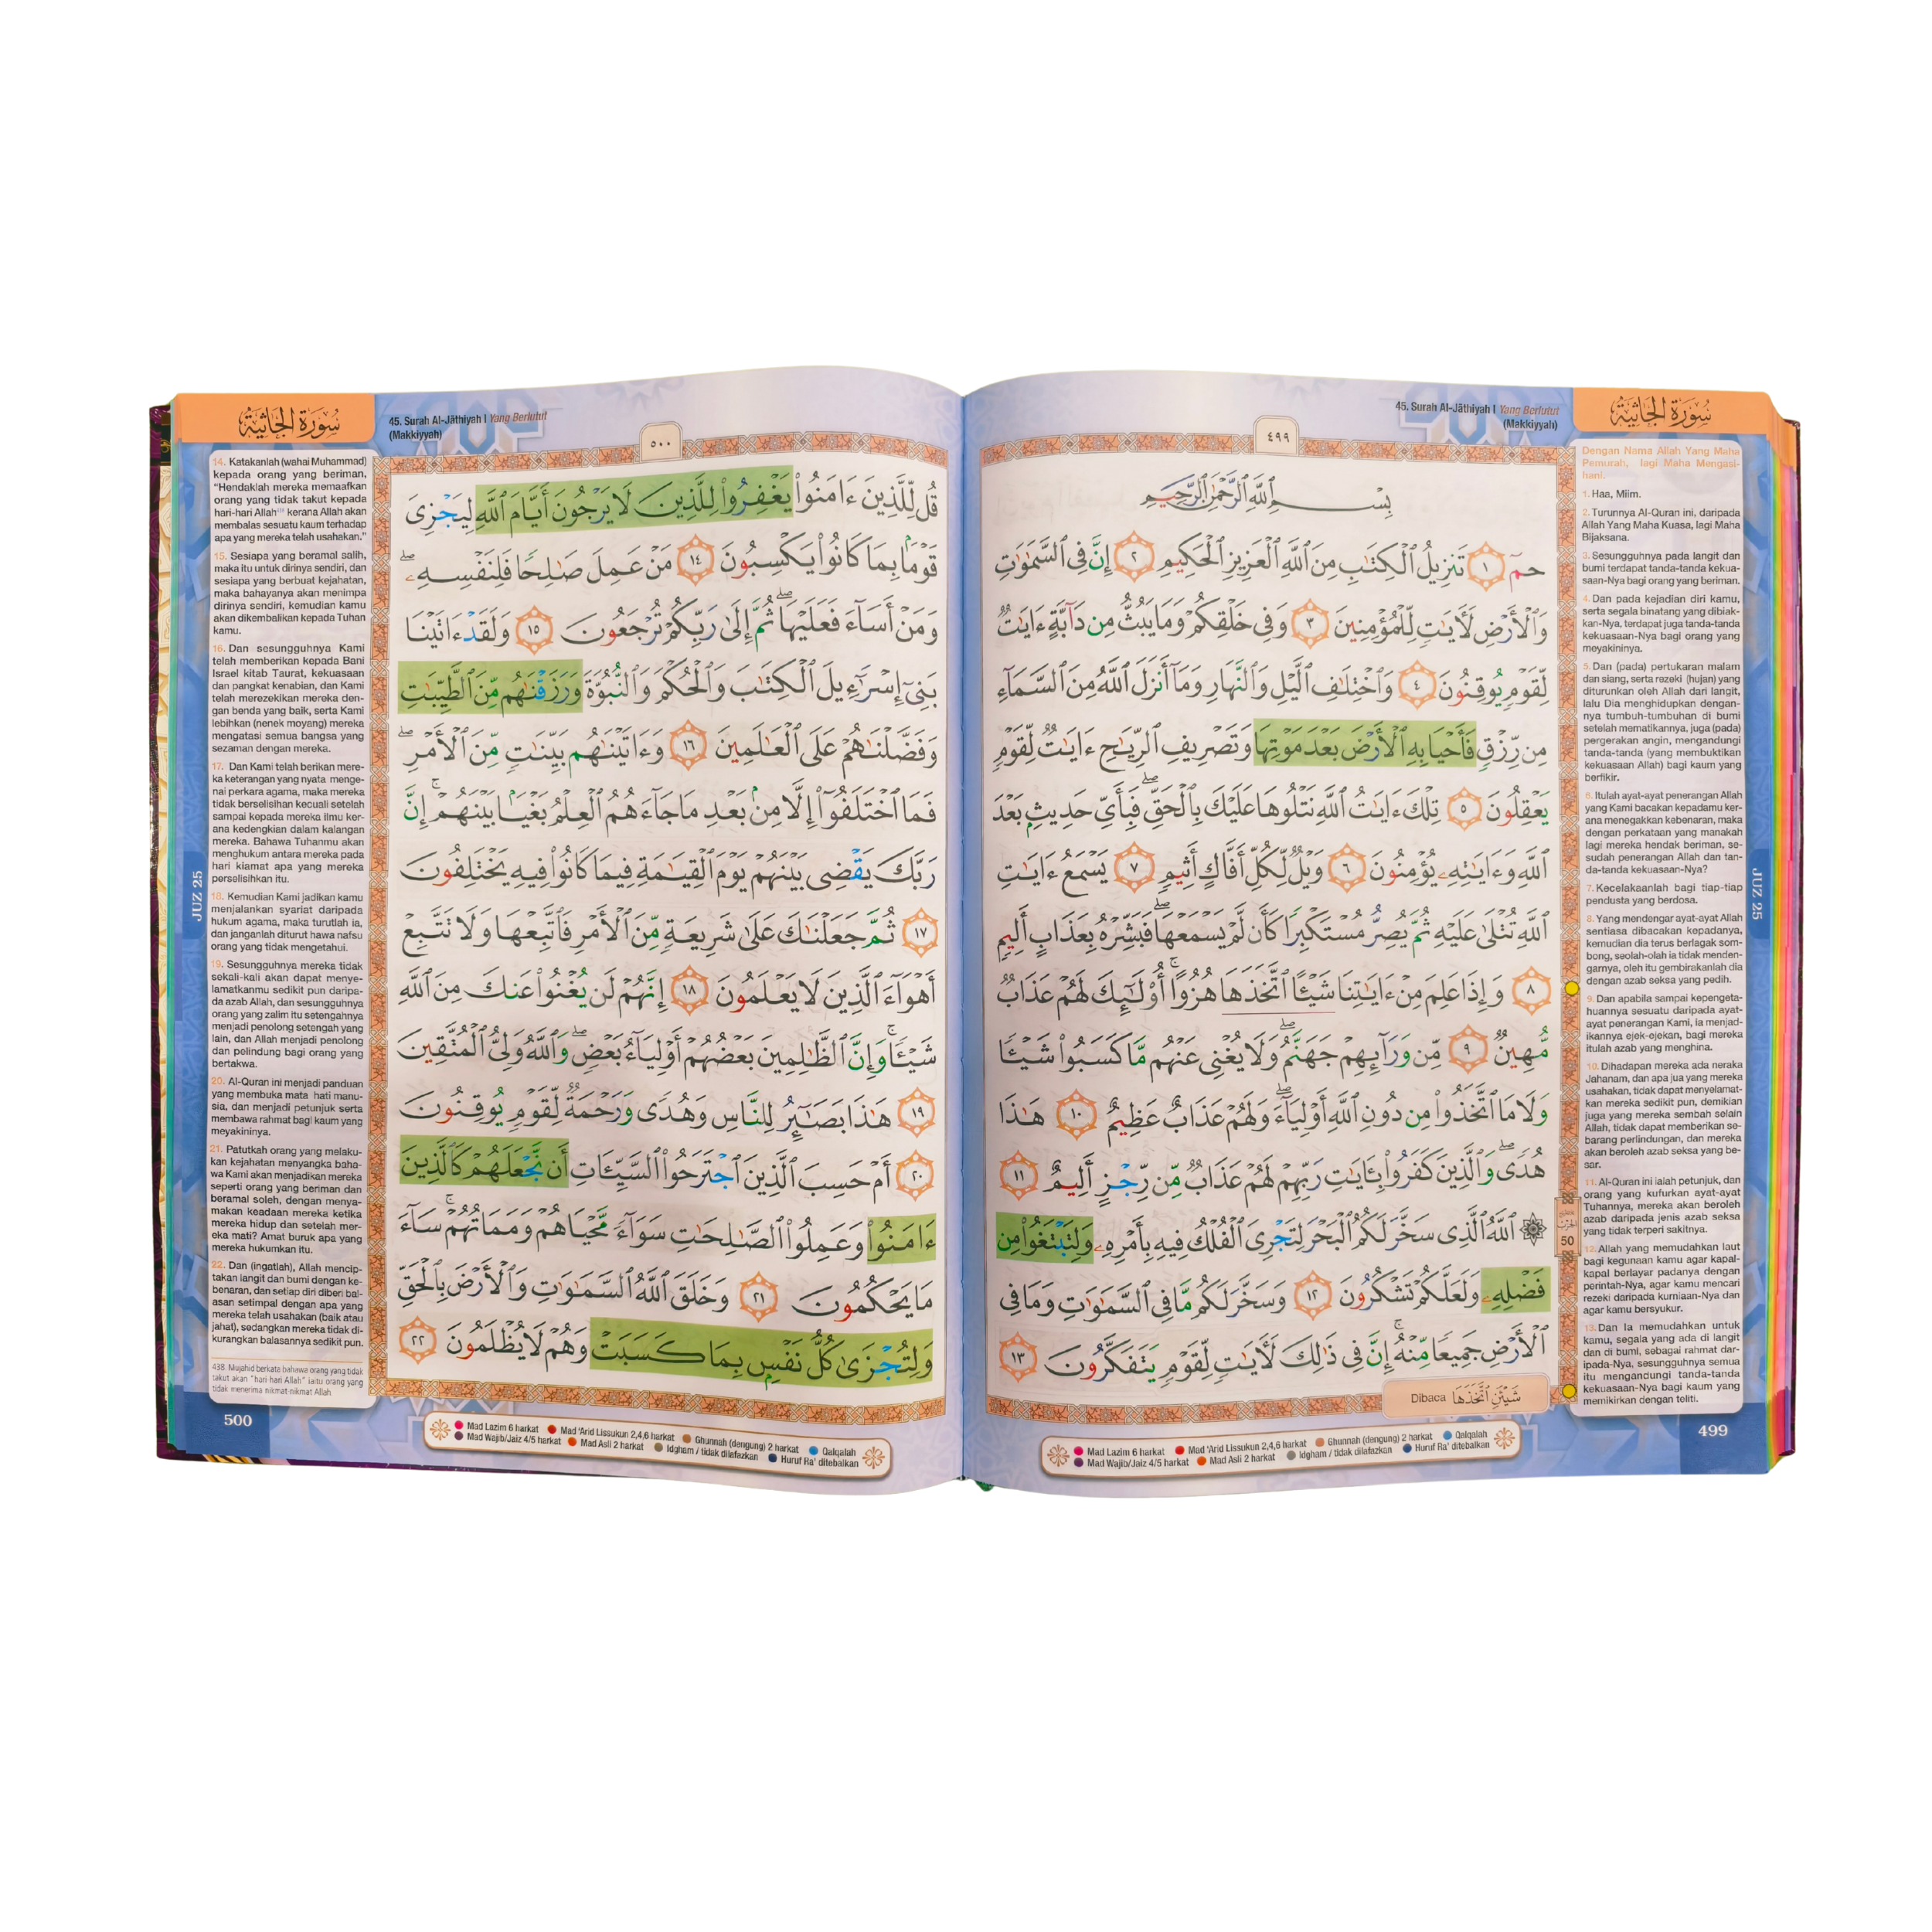 45. Surah Al-Jāthiyah | Yang Berlutut
(Makkiyyah)
سُورَةُ الجَاثِيَةِ
٤٩٩
بِسْمِ ٱللَّهِ ٱلرَّحْمَٰنِ ٱلرَّحِيمِ
حمٓ ١ تَنزِيلُ ٱلْكِتَٰبِ مِنَ ٱللَّهِ ٱلْعَزِيزِ ٱلْحَكِيمِ ٢ إِنَّ فِى ٱلسَّمَٰوَٰتِ
وَٱلْأَرْضِ لَءَايَٰتٍ لِّلْمُؤْمِنِينَ ٣ وَفِى خَلْقِكُمْ وَمَا يَبُثُّ مِن دَآبَّةٍ ءَايَٰتٌ
لِّقَوْمٍ يُوقِنُونَ ٤ وَٱخْتِلَٰفِ ٱلَّيْلِ وَٱلنَّهَارِ وَمَآ أَنزَلَ ٱللَّهُ مِنَ ٱلسَّمَآءِ
مِن رِّزْقٍ فَأَحْيَا بِهِ ٱلْأَرْضَ بَعْدَ مَوْتِهَا وَتَصْرِيفِ ٱلرِّيَٰحِ ءَايَٰتٌ لِّقَوْمٍ
يَعْقِلُونَ ٥ تِلْكَ ءَايَٰتُ ٱللَّهِ نَتْلُوهَا عَلَيْكَ بِٱلْحَقِّ ۖ فَبِأَىِّ حَدِيثٍۭ بَعْدَ
ٱللَّهِ وَءَايَٰتِهِۦ يُؤْمِنُونَ ٦ وَيْلٌ لِّكُلِّ أَفَّاكٍ أَثِيمٍ ٧ يَسْمَعُ ءَايَٰتِ
ٱللَّهِ تُتْلَىٰ عَلَيْهِ ثُمَّ يُصِرُّ مُسْتَكْبِرًا كَأَن لَّمْ يَسْمَعْهَا ۖ فَبَشِّرْهُ بِعَذَابٍ أَلِيمٍ
٨ وَإِذَا عَلِمَ مِنْ ءَايَٰتِنَا شَيْـًٔا ٱتَّخَذَهَا هُزُوًا ۚ أُو۟لَٰٓئِكَ لَهُمْ عَذَابٌ
مُّهِينٌ ٩ مِّن وَرَآئِهِمْ جَهَنَّمُ ۖ وَلَا يُغْنِى عَنْهُم مَّا كَسَبُوا۟ شَيْـًٔا
وَلَا مَا ٱتَّخَذُوا۟ مِن دُونِ ٱللَّهِ أَوْلِيَآءَ ۖ وَلَهُمْ عَذَابٌ عَظِيمٌ ١٠ هَٰذَا
هُدًى ۖ وَٱلَّذِينَ كَفَرُوا۟ بِـَٔايَٰتِ رَبِّهِمْ لَهُمْ عَذَابٌ مِّن رِّجْزٍ أَلِيمٌ ١١
۞ ٱللَّهُ ٱلَّذِى سَخَّرَ لَكُمُ ٱلْبَحْرَ لِتَجْرِىَ ٱلْفُلْكُ فِيهِ بِأَمْرِهِۦ وَلِتَبْتَغُوا۟ مِن
فَضْلِهِۦ وَلَعَلَّكُمْ تَشْكُرُونَ ١٢ وَسَخَّرَ لَكُم مَّا فِى ٱلسَّمَٰوَٰتِ وَمَا فِى
ٱلْأَرْضِ جَمِيعًا مِّنْهُ ۚ إِنَّ فِى ذَٰلِكَ لَءَايَٰتٍ لِّقَوْمٍ يَتَفَكَّرُونَ ١٣
Dibaca شَيْئَنِ ٱتَّخَذَهَا
50
Dengan Nama Allah Yang Maha
Pemurah, lagi Maha Mengasi-
hani.
1. Haa, Miim.
2. Turunnya Al-Quran ini, daripada
Allah Yang Maha Kuasa, lagi Maha
Bijaksana.
3. Sesungguhnya pada langit dan
bumi terdapat tanda-tanda kekua-
saan-Nya bagi orang yang beriman.
4. Dan pada kejadian diri kamu,
serta segala binatang yang dibiak-
kan-Nya, terdapat juga tanda-tanda
kekuasaan-Nya bagi orang yang
meyakininya.
5. Dan (pada) pertukaran malam
dan siang, serta rezeki (hujan) yang
diturunkan oleh Allah dari langit,
lalu Dia menghidupkan dengan-
nya tumbuh-tumbuhan di bumi
setelah mematikannya, juga (pada)
pergerakan angin, mengandungi
tanda-tanda (yang membuktikan
kekuasaan Allah) bagi kaum yang
berfikir.
6. Itulah ayat-ayat penerangan Allah
yang Kami bacakan kepadamu ker-
ana menegakkan kebenaran, maka
dengan perkataan yang manakah
lagi mereka hendak beriman, se-
sudah penerangan Allah dan tan-
da-tanda kekuasaan-Nya?
7. Kecelakaanlah bagi tiap-tiap
pendusta yang berdosa.
8. Yang mendengar ayat-ayat Allah
sentiasa dibacakan kepadanya,
kemudian dia terus berlagak som-
bong, seolah-olah ia tidak menden-
garnya, oleh itu gembirakanlah dia
dengan azab seksa yang pedih.
9. Dan apabila sampai kepengeta-
huannya sesuatu daripada ayat-
ayat penerangan Kami, ia menjad-
ikannya ejek-ejekan, bagi mereka
itulah azab yang menghina.
10. Dihadapan mereka ada neraka
Jahanam, dan apa jua yang mereka
usahakan, tidak dapat menyelamat-
kan mereka sedikit pun, demikian
juga yang mereka sembah selain
Allah, tidak dapat memberikan se-
barang perlindungan, dan mereka
akan beroleh azab seksa yang be-
sar.
11. Al-Quran ini ialah petunjuk, dan
orang yang kufurkan ayat-ayat
Tuhannya, mereka akan beroleh
azab daripada jenis azab seksa
yang tidak terperi sakitnya.
12. Allah yang memudahkan laut
bagi kegunaan kamu agar kapal-
kapal berlayar padanya dengan
perintah-Nya, agar kamu mencari
rezeki daripada kurniaan-Nya dan
agar kamu bersyukur.
13. Dan Ia memudahkan untuk
kamu, segala yang ada di langit
dan di bumi, sebagai rahmat dar-
ipada-Nya, sesungguhnya semua
itu mengandungi tanda-tanda
kekuasaan-Nya bagi kaum yang
memikirkan dengan teliti.
JUZ 25
Mad Lazim 6 harkat Mad 'Arid Lissukun 2,4,6 harkat Ghunnah (dengung) 2 harkat Qalqalah
Mad Wajib/Jaiz 4/5 harkat Mad Asli 2 harkat Idgham / tidak dilafazkan Huruf Ra' ditebalkan
499
سُورَةُ الجَاثِيَةِ
45. Surah Al-Jāthiyah | Yang Berlutut
(Makkiyyah)
٥٠٠
قُل لِّلَّذِينَ ءَامَنُوا۟ يَغْفِرُوا۟ لِلَّذِينَ لَا يَرْجُونَ أَيَّامَ ٱللَّهِ لِيَجْزِىَ
قَوْمًۢا بِمَا كَانُوا۟ يَكْسِبُونَ ١٤ مَنْ عَمِلَ صَٰلِحًا فَلِنَفْسِهِۦ ۖ
وَمَنْ أَسَآءَ فَعَلَيْهَا ۖ ثُمَّ إِلَىٰ رَبِّكُمْ تُرْجَعُونَ ١٥ وَلَقَدْ ءَاتَيْنَا
بَنِىٓ إِسْرَٰٓءِيلَ ٱلْكِتَٰبَ وَٱلْحُكْمَ وَٱلنُّبُوَّةَ وَرَزَقْنَٰهُم مِّنَ ٱلطَّيِّبَٰتِ
وَفَضَّلْنَٰهُمْ عَلَى ٱلْعَٰلَمِينَ ١٦ وَءَاتَيْنَٰهُم بَيِّنَٰتٍ مِّنَ ٱلْأَمْرِ ۖ
فَمَا ٱخْتَلَفُوٓا۟ إِلَّا مِنۢ بَعْدِ مَا جَآءَهُمُ ٱلْعِلْمُ بَغْيًۢا بَيْنَهُمْ ۚ إِنَّ
رَبَّكَ يَقْضِى بَيْنَهُمْ يَوْمَ ٱلْقِيَٰمَةِ فِيمَا كَانُوا۟ فِيهِ يَخْتَلِفُونَ
١٧ ثُمَّ جَعَلْنَٰكَ عَلَىٰ شَرِيعَةٍ مِّنَ ٱلْأَمْرِ فَٱتَّبِعْهَا وَلَا تَتَّبِعْ
أَهْوَآءَ ٱلَّذِينَ لَا يَعْلَمُونَ ١٨ إِنَّهُمْ لَن يُغْنُوا۟ عَنكَ مِنَ ٱللَّهِ
شَيْـًٔا ۚ وَإِنَّ ٱلظَّٰلِمِينَ بَعْضُهُمْ أَوْلِيَآءُ بَعْضٍ ۖ وَٱللَّهُ وَلِىُّ ٱلْمُتَّقِينَ
١٩ هَٰذَا بَصَٰٓئِرُ لِلنَّاسِ وَهُدًى وَرَحْمَةٌ لِّقَوْمٍ يُوقِنُونَ
٢٠ أَمْ حَسِبَ ٱلَّذِينَ ٱجْتَرَحُوا۟ ٱلسَّيِّـَٔاتِ أَن نَّجْعَلَهُمْ كَٱلَّذِينَ
ءَامَنُوا۟ وَعَمِلُوا۟ ٱلصَّٰلِحَٰتِ سَوَآءً مَّحْيَاهُمْ وَمَمَاتُهُمْ ۚ سَآءَ
مَا يَحْكُمُونَ ٢١ وَخَلَقَ ٱللَّهُ ٱلسَّمَٰوَٰتِ وَٱلْأَرْضَ بِٱلْحَقِّ
وَلِتُجْزَىٰ كُلُّ نَفْسٍۭ بِمَا كَسَبَتْ وَهُمْ لَا يُظْلَمُونَ ٢٢
14. Katakanlah (wahai Muhammad)
kepada orang yang beriman,
"Hendaklah mereka memaafkan
orang yang tidak takut kepada
hari-hari Allah⁴³⁸ kerana Allah akan
membalas sesuatu kaum terhadap
apa yang mereka telah usahakan."
15. Sesiapa yang beramal salih,
maka itu untuk dirinya sendiri, dan
sesiapa yang berbuat kejahatan,
maka bahayanya akan menimpa
dirinya sendiri, kemudian kamu
akan dikembalikan kepada Tuhan
kamu.
16. Dan sesungguhnya Kami
telah memberikan kepada Bani
Israel kitab Taurat, kekuasaan
dan pangkat kenabian, dan Kami
telah merezekikan mereka den-
gan benda yang baik, serta Kami
lebihkan (nenek moyang) mereka
mengatasi semua bangsa yang
sezaman dengan mereka.
17. Dan Kami telah berikan mere-
ka keterangan yang nyata menge-
nai perkara agama, maka mereka
tidak berselisihan kecuali setelah
sampai kepada mereka ilmu ker-
ana kedengkian dalam kalangan
mereka. Bahawa Tuhanmu akan
menghukum antara mereka pada
hari kiamat apa yang mereka
perselisihkan itu.
18. Kemudian Kami jadikan kamu
menjalankan syariat daripada
hukum agama, maka turutlah ia,
dan janganlah diturut hawa nafsu
orang yang tidak mengetahui.
19. Sesungguhnya mereka tidak
sekali-kali akan dapat menye-
lamatkanmu sedikit pun daripa-
da azab Allah, dan sesungguhnya
orang yang zalim itu setengahnya
menjadi penolong setengah yang
lain, dan Allah menjadi penolong
dan pelindung bagi orang yang
bertakwa.
20. Al-Quran ini menjadi panduan
yang membuka mata hati manu-
sia, dan menjadi petunjuk serta
membawa rahmat bagi kaum yang
meyakininya.
21. Patutkah orang yang melaku-
kan kejahatan menyangka baha-
wa Kami akan menjadikan mereka
seperti orang yang beriman dan
beramal soleh, dengan menya-
makan keadaan mereka ketika
mereka hidup dan setelah mer-
eka mati? Amat buruk apa yang
mereka hukumkan itu.
22. Dan (ingatlah), Allah mencip-
takan langit dan bumi dengan ke-
benaran, dan setiap diri diberi bal-
asan setimpal dengan apa yang
mereka telah usahakan (baik atau
jahat), sedangkan mereka tidak di-
kurangkan balasannya sedikit pun.
438. Mujahid berkata bahawa orang yang tidak
takut akan "hari-hari Allah" iaitu orang yang
tidak menerima nikmat-nikmat Allah
JUZ 25
Mad Lazim 6 harkat Mad 'Arid Lissukun 2,4,6 harkat Ghunnah (dengung) 2 harkat Qalqalah
Mad Wajib/Jaiz 4/5 harkat Mad Asli 2 harkat Idgham / tidak dilafazkan Huruf Ra' ditebalkan
500